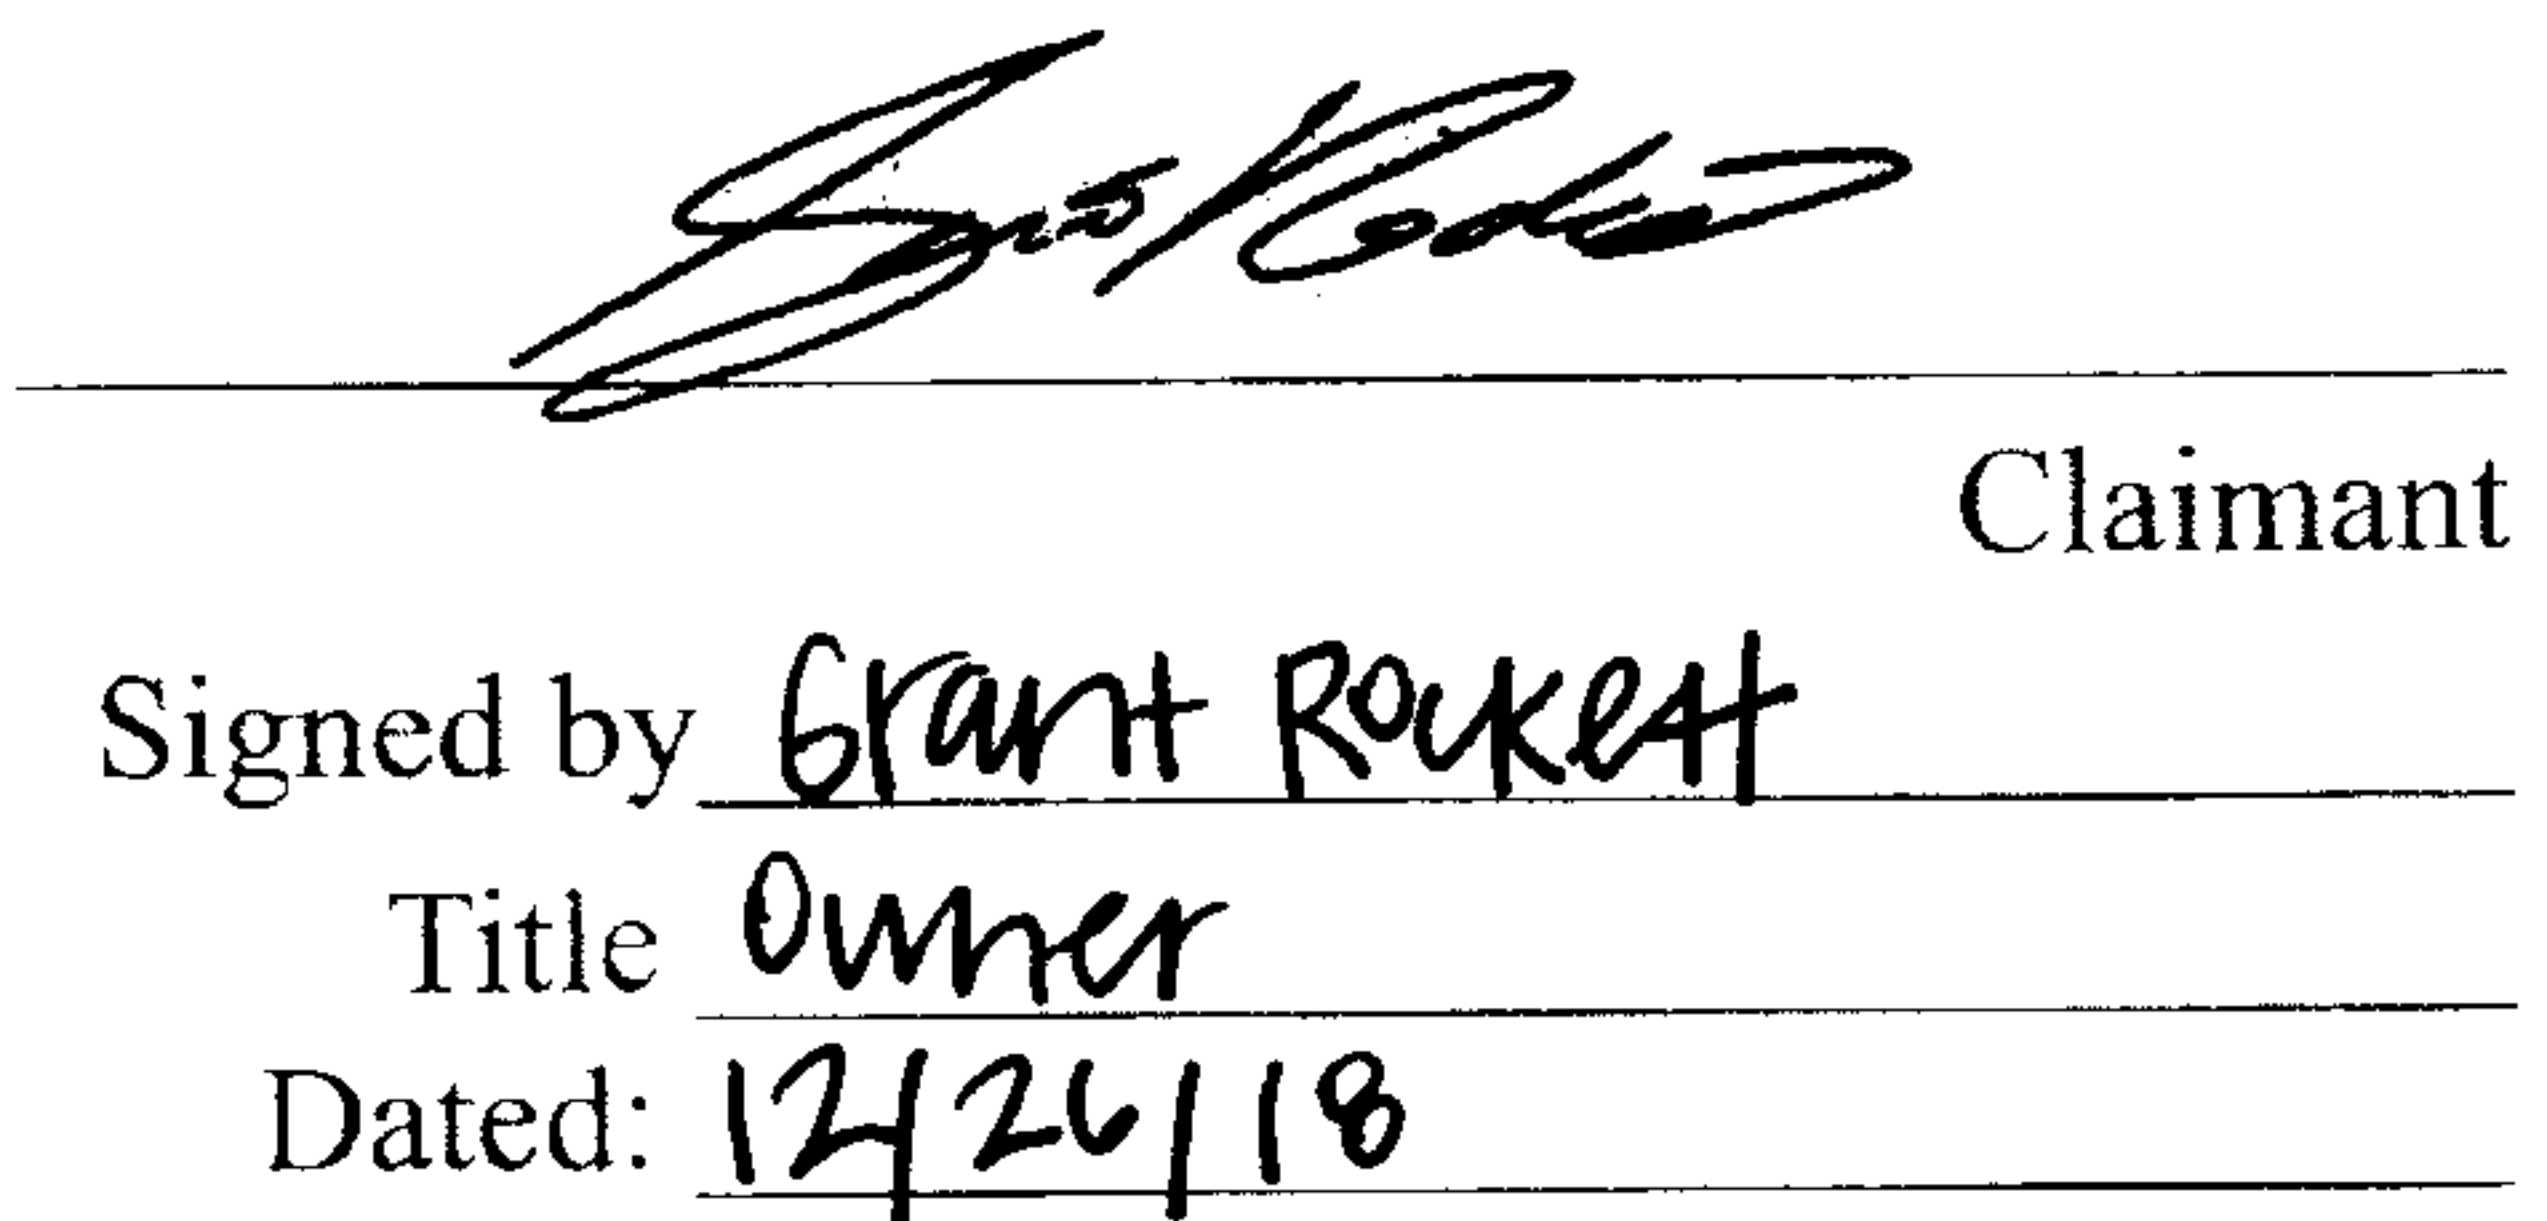 Claimant
Signed by Grant Rockett
Title Owner
Dated: 12/26/18